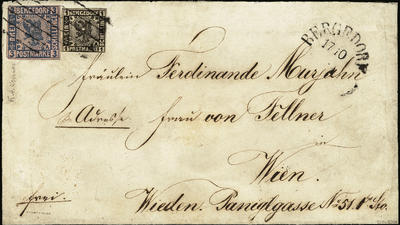 BERGEDORF
POSTMARKE
BERGEDORF
POSTMARKE
BERGEDORF
17 10
Fräulein Ferdinande Murjahn
Adresse Frau von Fellner
in
Wien.
Wieden. Paniglgasse No 51. 1r Sto.
frei.